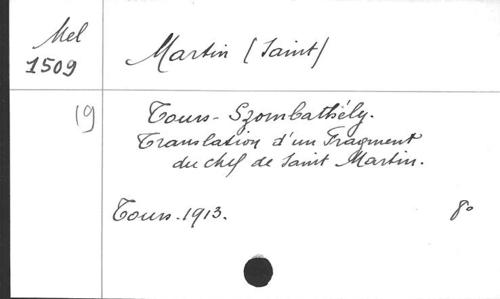 Mel
1509
Martin (Saint)
19
Tours - Szombathély.
Translation d'un Fragment
du chef de Saint Martin.
Tours. 1913.
8°